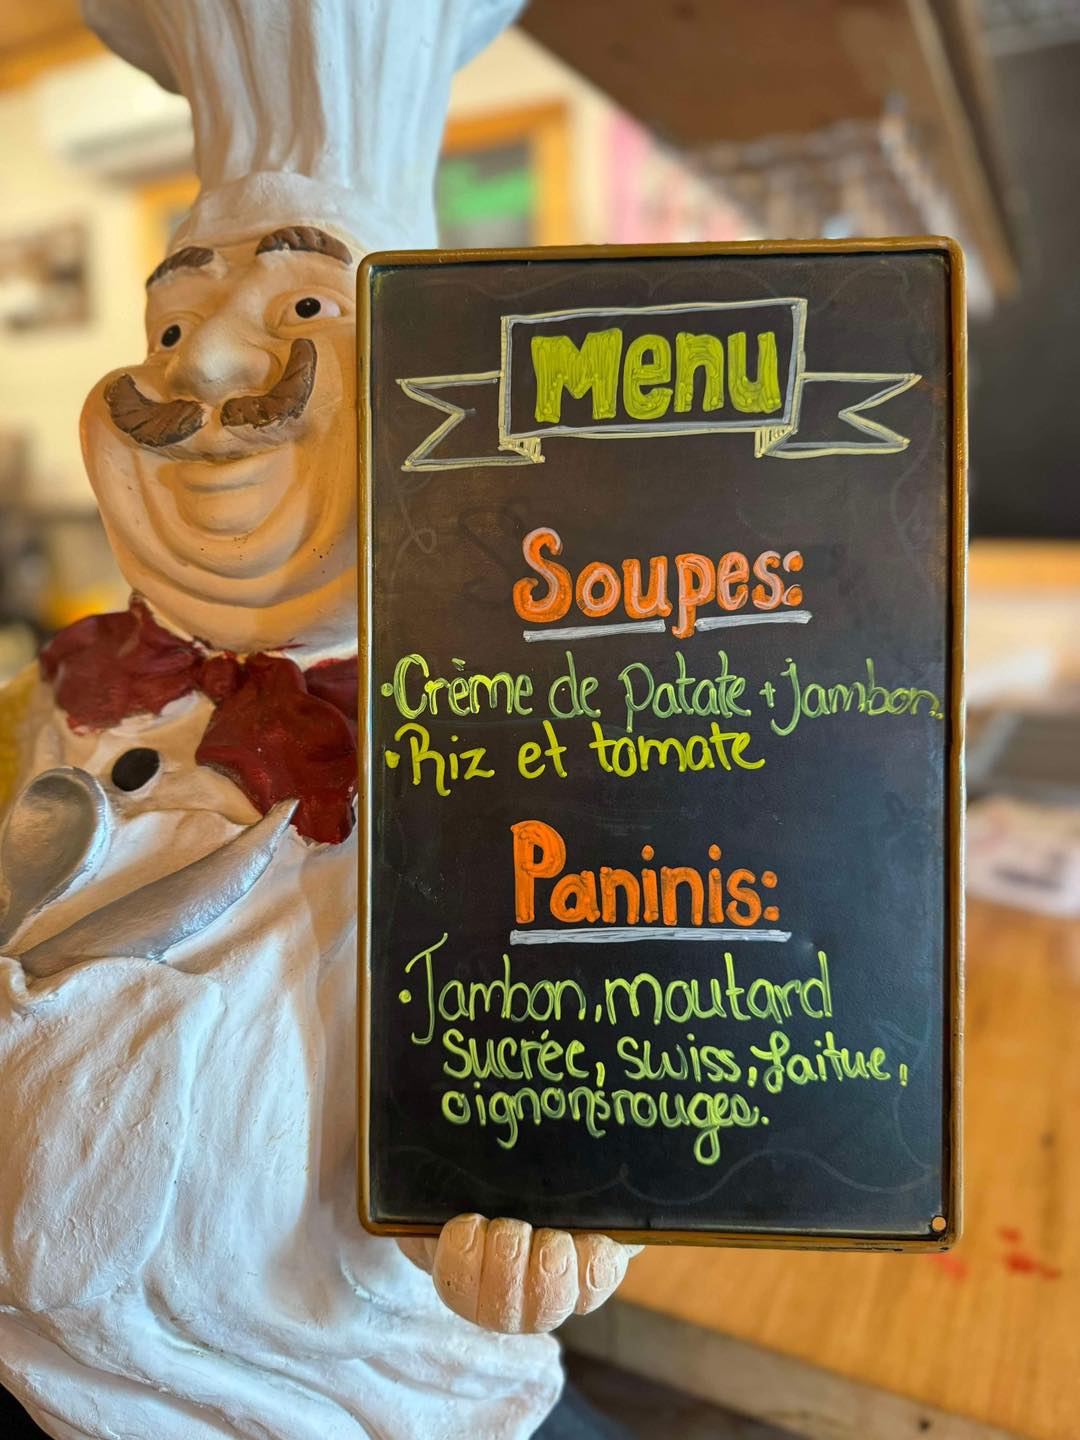 Menu
Soupes:
•Crème de patate + jambon.
•Riz et tomate
Paninis:
•Jambon, moutard
sucrée, swiss, laitue,
oignons rouges.